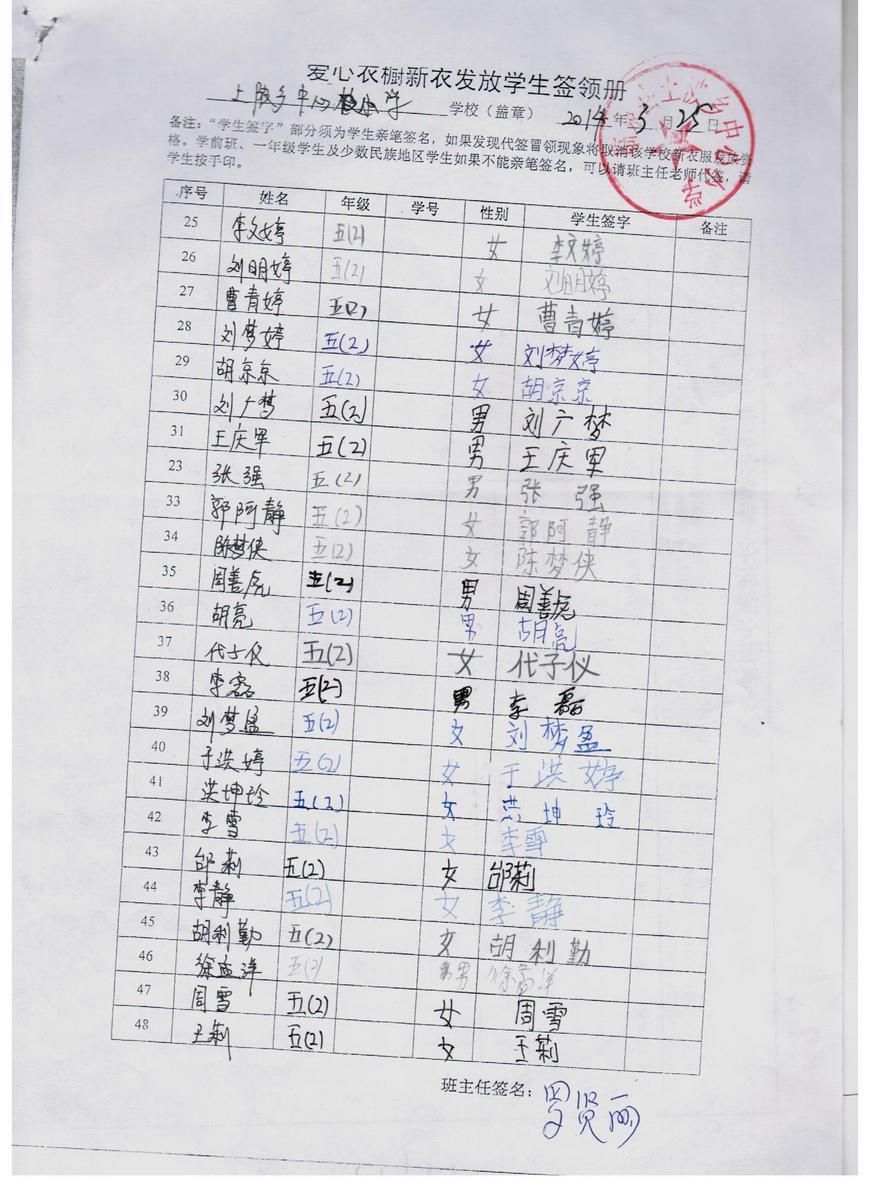 爱心衣橱新衣发放学生签领册
上陂乡中心校小学 学校（盖章） 2014年3月25日
备注：“学生签字”部分须为学生亲笔签名，如果发现代签冒领现象将取消该学校新衣服发放资
格。学前班、一年级学生及少数民族地区学生如果不能亲笔签名，可以请班主任老师代签，请
学生按手印。
序号 姓名 年级 学号 性别 学生签字 备注
25 李文婷 五(2) 女 李文婷
26 刘明婷 五(2) 女 刘明婷
27 曹青婷 五(2) 女 曹青婷
28 刘梦婷 五(2) 女 刘梦婷
29 胡京京 五(2) 女 胡京京
30 刘广梦 五(2) 男 刘广梦
31 王庆军 五(2) 男 王庆军
23 张强 五(2) 男 张强
33 郭阿静 五(2) 女 郭阿静
34 陈梦侠 五(2) 女 陈梦侠
35 周善虎 五(2) 男 周善虎
36 胡亮 五(2) 男 胡亮
37 代子仪 五(2) 女 代子仪
38 李磊 五(2) 男 李磊
39 刘梦盈 五(2) 女 刘梦盈
40 于洪婷 五(2) 女 于洪婷
41 洪坤玲 五(2) 女 洪坤玲
42 李雪 五(2) 女 李雪
43 邰莉 五(2) 女 邰莉
44 李静 五(2) 女 李静
45 胡利勤 五(2) 女 胡利勤
46 徐孟洋 五(2) 男 徐孟洋
47 周雪 五(2) 女 周雪
48 王莉 五(2) 女 王莉
班主任签名：罗贤丽